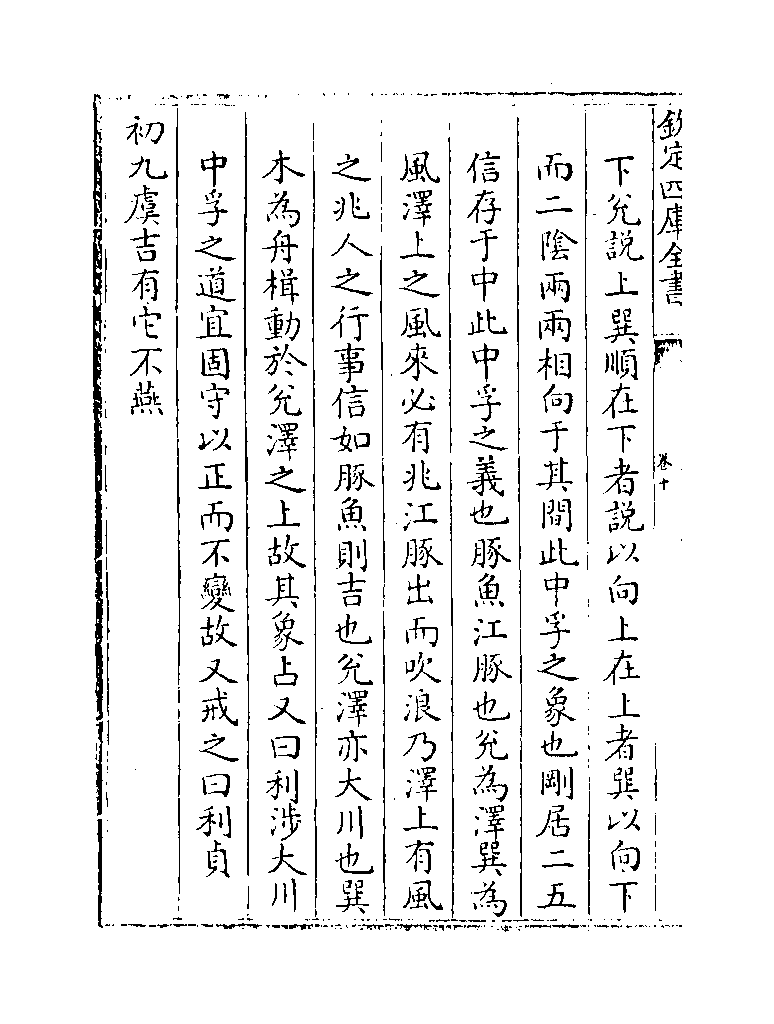 欽定四庫全書
卷十
下兊說上巽順在下者說以向上在上者巽以向下
而二陰兩兩相向于其間此中孚之象也剛居二五
信存于中此中孚之義也豚魚江豚也兊為澤巽為
風澤上之風來必有兆江豚出而吹浪乃澤上有風
之兆人之行事信如豚魚則吉也兊澤亦大川也巽
木為舟楫動於兊澤之上故其象占又曰利涉大川
中孚之道宜固守以正而不變故又戒之曰利貞
初九虞吉有它不燕